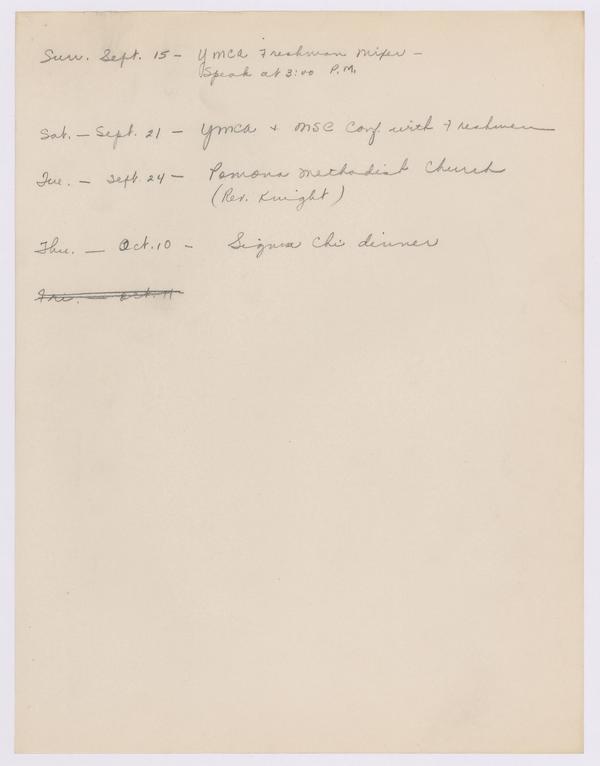 Sun. Sept. 15 - YMCA Freshman Mixer -
Speak at 3:00 P.M.
Sat. - Sept. 21 - YMCA + MSC Conf. with Freshmen
Tue. - Sept. 24 - Pomona Methodist Church
(Rev. Knight)
Thu. - Oct. 10 - Sigma Chi dinner
Fri. - Oct. 11